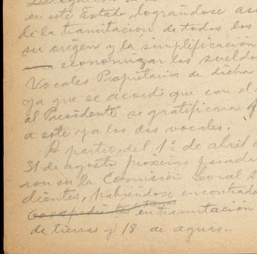 en este Estado, lográndose así
de la tramitación de todos los
su origen y la simplificación
economizar los sueldos
Vocales Propietarios de dicha
ya que se acordó que con el
al Presidente se gratificara
a este y a los dos vocales.
A partir del 1º de abril a
31 de agosto próximo pasado
ron en la Comisión Local A
dientes, habiéndose encontrado
en tramitación
de tierras y 18 de aguas.